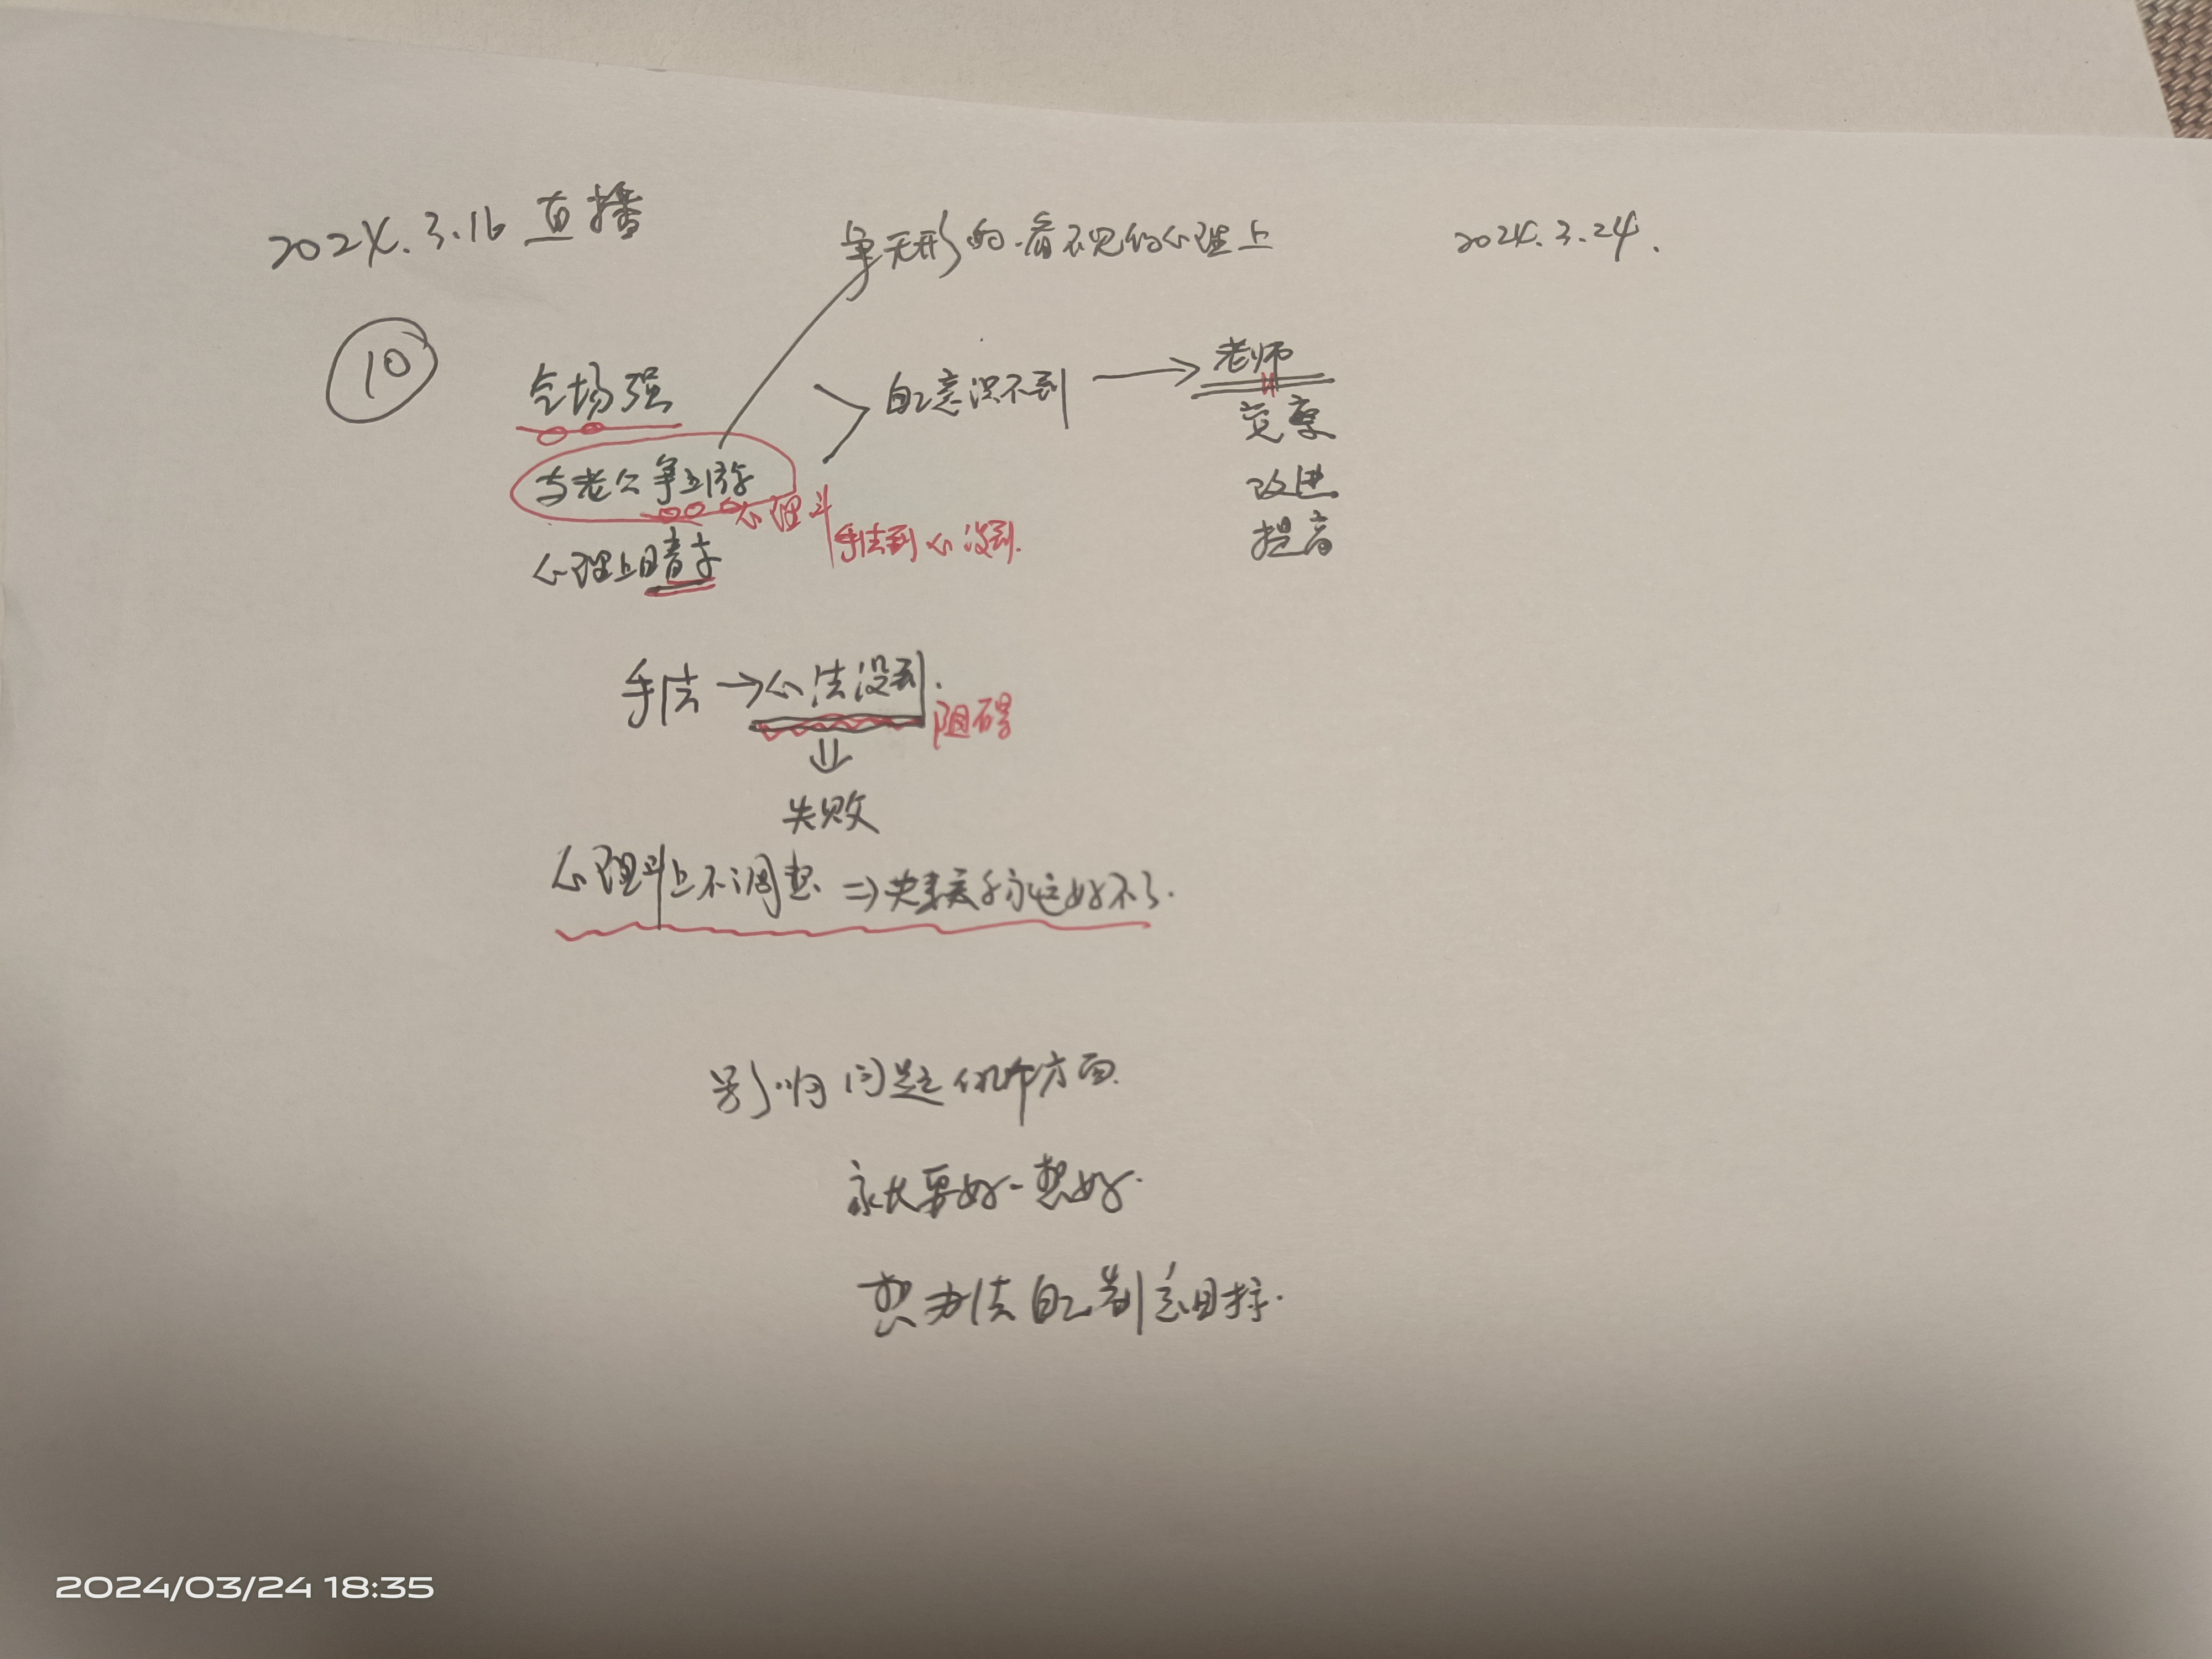 2024.3.16 直播
争无形的.看不见的心理上
2024.3.24.
10
气场强
与老公争上游
心理斗
手法到心没到.
心理上暗斗
自己意识不到
老师
改进
提高
手法→心法没到.
阻碍
失败
心理斗上不调整⇒夫妻关系永远好不了.
别归问题
方面.
永长要好-想好.
想办法自己制定目标.